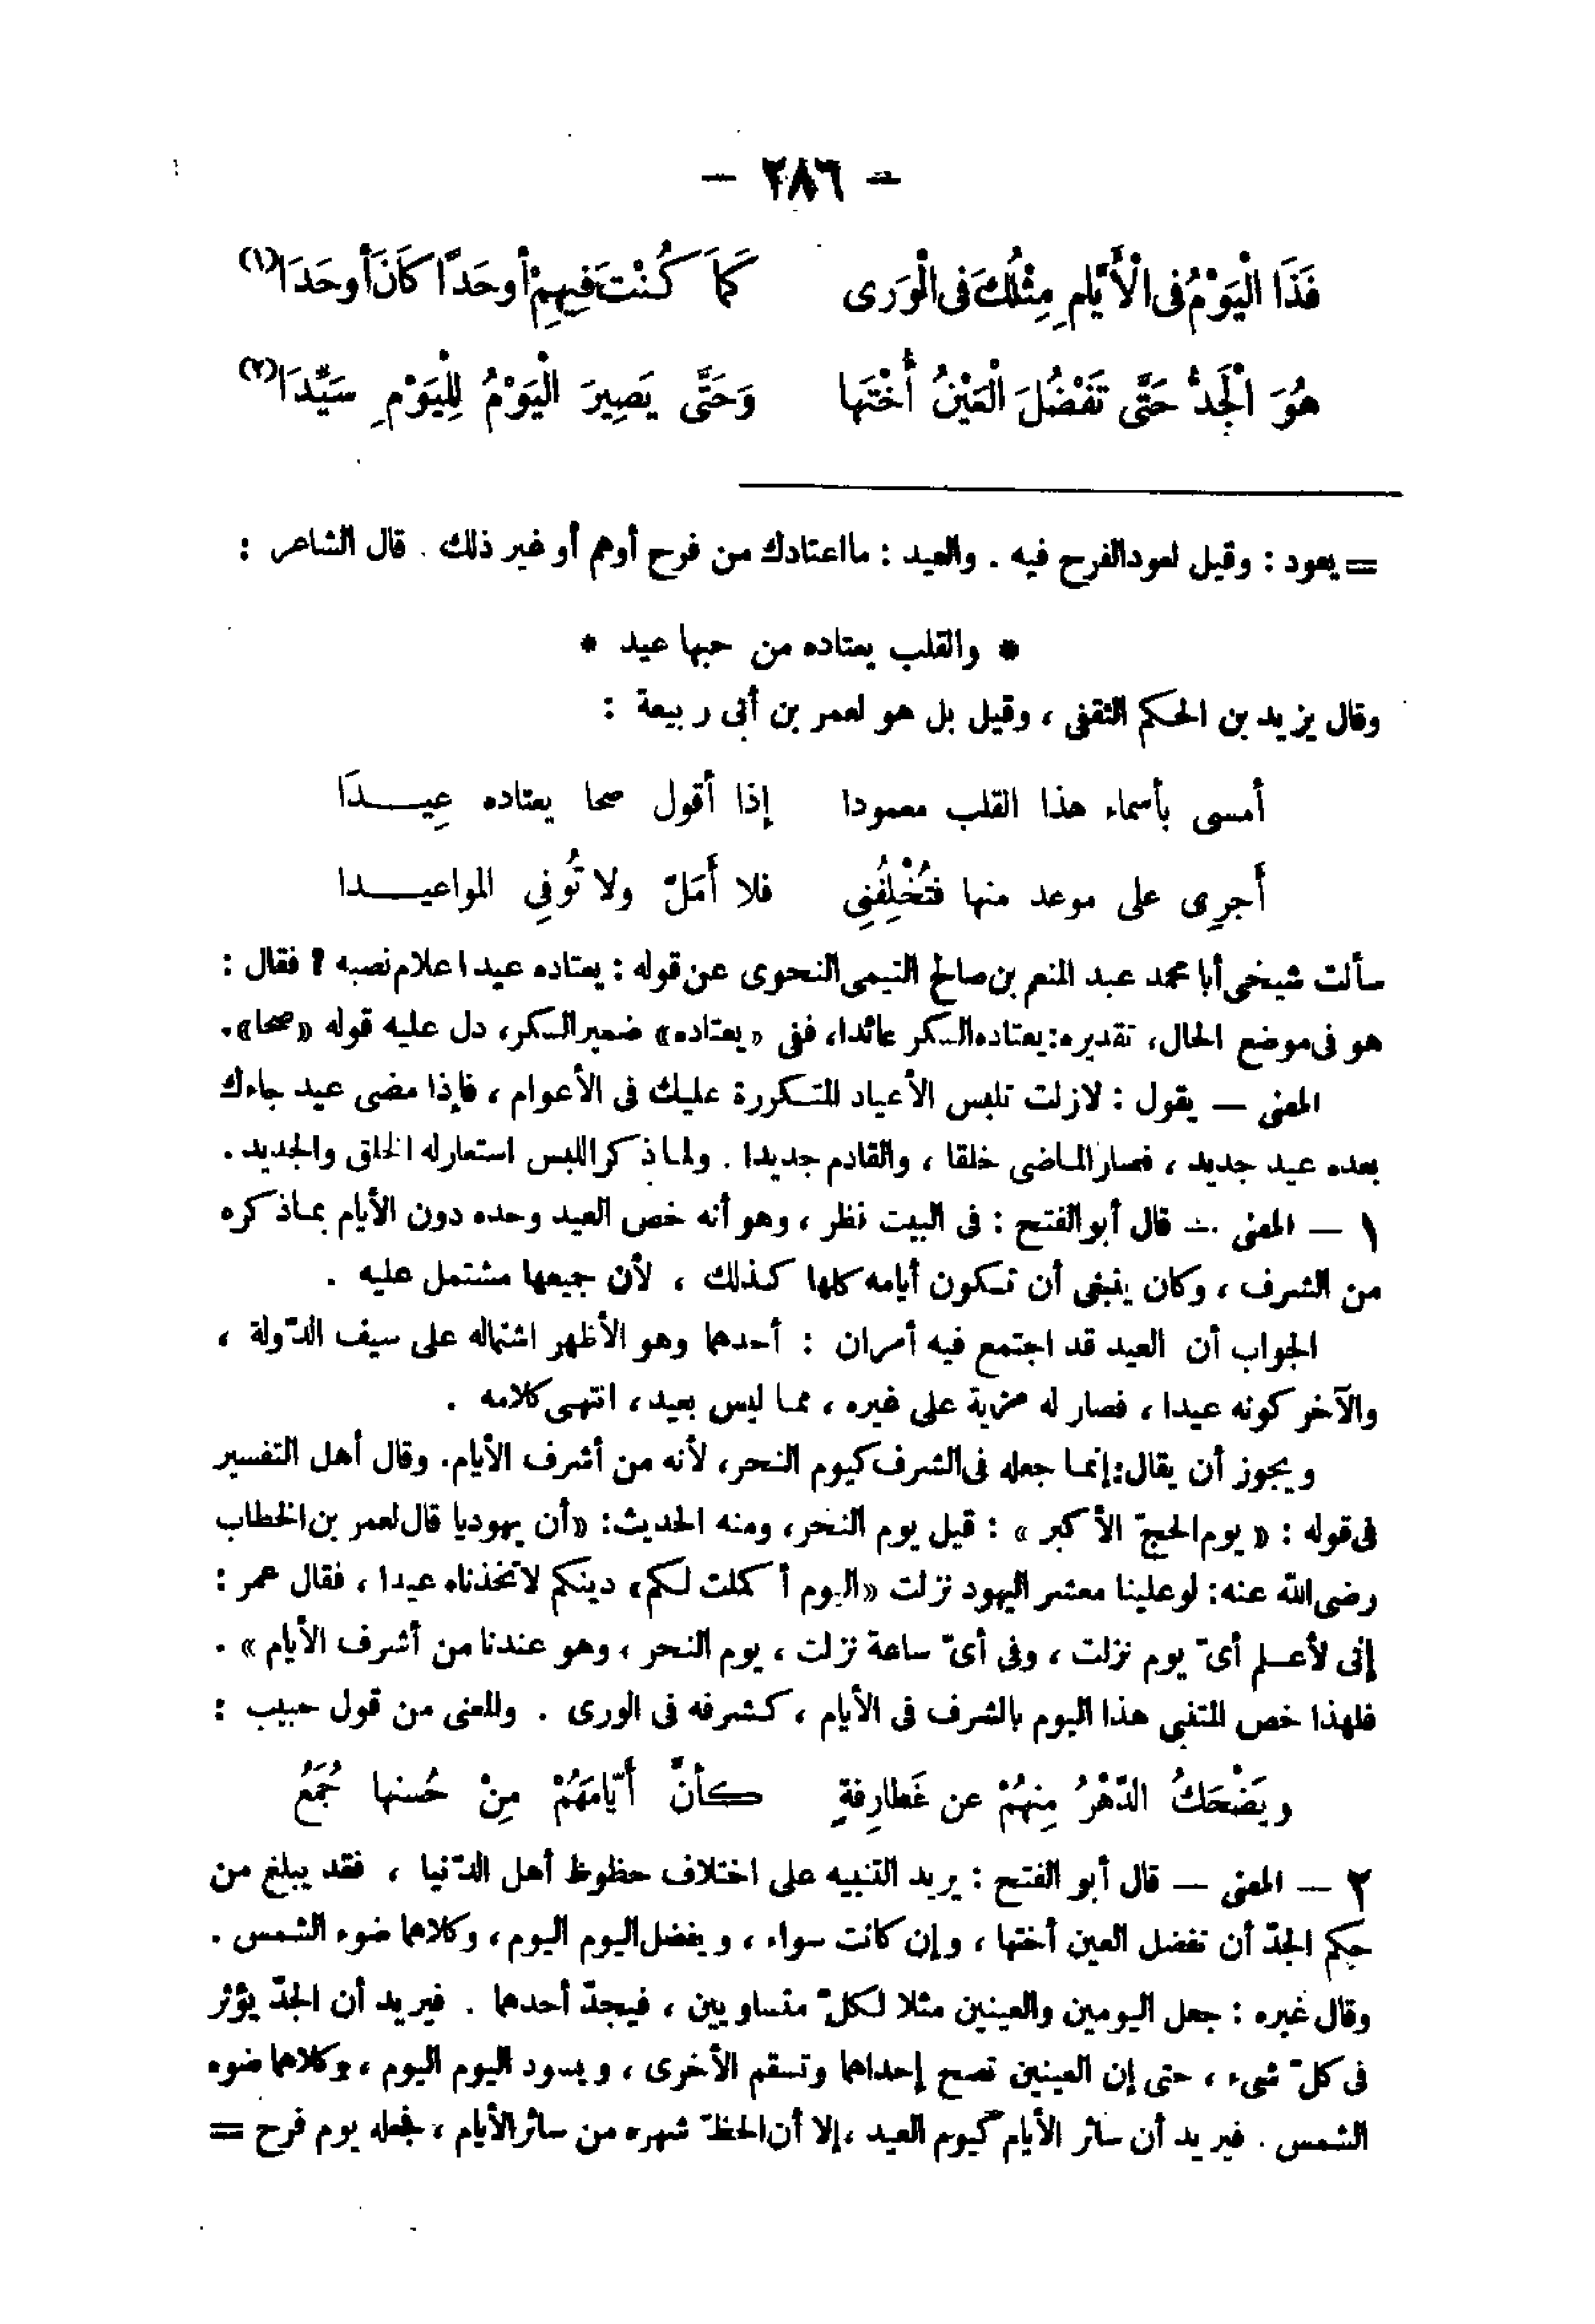 — ٢٨٦ —
فَذَا الْيَوْمُ فى الْأَيَّامِ مِثْلُكَ فى الْوَرَى كَمَا كُنْتَ فِيهِمْ أوحَدًا كَانَ أوحَدَا (١)
هُوَ الْجَدُّ حَتَّى تَفْضُلَ الْعَيْنُ أُخْتَهَا وَحَتَّى يَصِيرَ الْيَوْمُ لِلْيَوْمِ سَيِّدَا (٢)
= يعود : وقيل لعود الفرح فيه . والعيد : ما اعتادك من فرح أوهم أو غير ذلك . قال الشاعر :
* والقلب يعتاده من حبها عيد *
وقال يزيد بن الحكم الثقفى ، وقيل بل هو لعمر بن أبى ربيعة :
أمسى بأسماء هذا القلب معمودا إذا أقول صحا يعتاده عِيــدَا
أَجرِى على موعد منها فتُخْلِفُنِى فلا أَمَلّ ولا تُوفِى المواعيــدا
سألت شيخى أبا محمد عبد المنعم بن صالح التيمى النحوى عن قوله : يعتاده عيدا علام نصبه ؟ فقال :
هو فى موضع الحال، تقديره: يعتاده السكر عائدا، ففى «يعتاده» ضمير السكر، دل عليه قوله «صحا».
المعنى — يقول : لازلت تلبس الأعياد المتكررة عليك فى الأعوام ، فإذا مضى عيد جاءك
بعده عيد جديد ، فصار الماضى خلقا ، والقادم جديدا . ولما ذكر اللبس استعار له الخلق والجديد .
١ — المعنى — قال أبو الفتح : فى البيت نظر ، وهو أنه خص العيد وحده دون الأيام بما ذكره
من الشرف ، وكان ينبغى أن تكون أيامه كلها كذلك ، لأن جميعها مشتمل عليه .
الجواب أن العيد قد اجتمع فيه أمران : أحدهما وهو الأظهر اشتماله على سيف الدّولة ،
والآخر كونه عيدا ، فصار له مزية على غيره ، مما ليس بعيد ، انتهى كلامه .
ويجوز أن يقال: إنما جعله فى الشرف كيوم النحر، لأنه من أشرف الأيام. وقال أهل التفسير
فى قوله : « يوم الحجّ الأكبر » : قيل يوم النحر، ومنه الحديث: «أن يهوديا قال لعمر بن الخطاب
رضى الله عنه: لو علينا معشر اليهود نزلت «اليوم أكملت لكم» دينكم لاتخذناه عيدا ، فقال عمر :
إنى لأعلم أىّ يوم نزلت ، وفى أىّ ساعة نزلت ، يوم النحر ، وهو عندنا من أشرف الأيام » .
فلهذا خص المتنبى هذا اليوم بالشرف فى الأيام ، كشرفه فى الورى . والمعنى من قول حبيب :
ويَضْحَكُ الدّهْرُ مِنهُمْ عن غَطارِفةٍ كأنَّ أيّامَهُمْ مِنْ حُسنها جُمَعُ
٢ — المعنى — قال أبو الفتح : يريد التنبيه على اختلاف حظوظ أهل الدّنيا ، فقد يبلغ من
حكم الجدّ أن تفضل العين أختها ، وإن كانت سواء ، ويفضل اليوم اليوم ، وكلاهما ضوء الشمس .
وقال غيره : جعل اليومين والعينين مثلا لكلّ متساويين ، فيجدّ أحدهما . فيريد أن الجدّ يؤثر
فى كلّ شىء ، حتى إن العينين تصح إحداهما وتسقم الأخرى ، ويسود اليوم اليوم ، وكلاهما ضوء
الشمس . فيريد أن سائر الأيام كيوم العيد ، إلا أن الحظّ شهره من سائر الأيام ، فجعله يوم فرح =